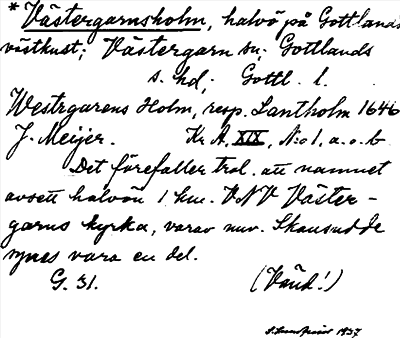 * Västergarnsholm, halvö på Gottlands
västkust; Västergarn sn; Gottlands
s. hd; Gottl. l.
Westrgarens Holm, resp. Lantholm 1646
J. Meijer. Kr. A. XIX, N:o 1, a. o. b
Det förefaller trol. att namnet
avsett halvön 1 km. VNV Väster-
garns kyrka, varav nuv. Skansudde
synes vara en del.
G. 31. (Vänd!)
1937